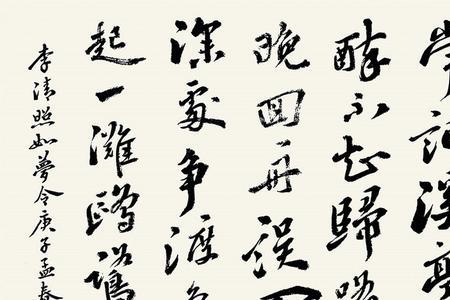 常記溪亭
醉不知歸路
晚回舟誤
深處爭渡爭
起一灘鷗鷺
李清照如夢令庚子孟春